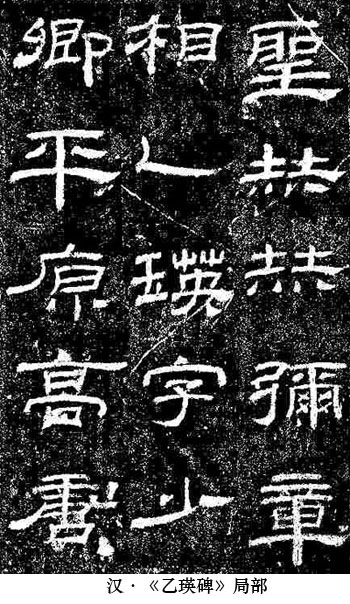 聖赫赫彌章
相乙瑛字少
卿平原高唐
汉·《乙瑛碑》局部